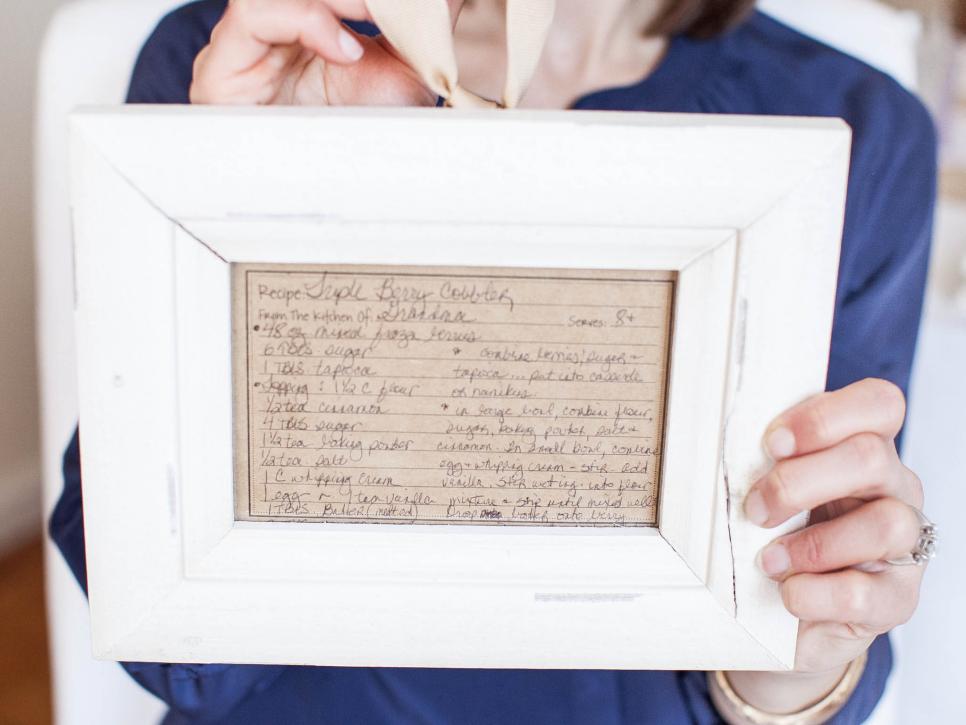 Recipe: Triple Berry Cobbler
From The Kitchen Of: Grandma Serves: 8+
48 oz mixed froza berries
6 TBLS sugar * combine berries, sugar +
1 TBLS tapioca tapioca ... put into casserole
Topping: 1 1/2 C flour or ramikus
1/2 tea cinnamon * in large bowl, combine flour,
4 TBLS sugar sugar, baking powder, salt +
1 1/2 tea baking powder cinnamon. In small bowl, combine
1/2 tea salt egg + whipping cream - stir. add
1 C whipping cream vanilla. Stir wet ing. into flour
1 egg ~ 1 tea vanilla mixture + stir until mixed well
1 TBLS Butter (melted) Drop batter onto berry